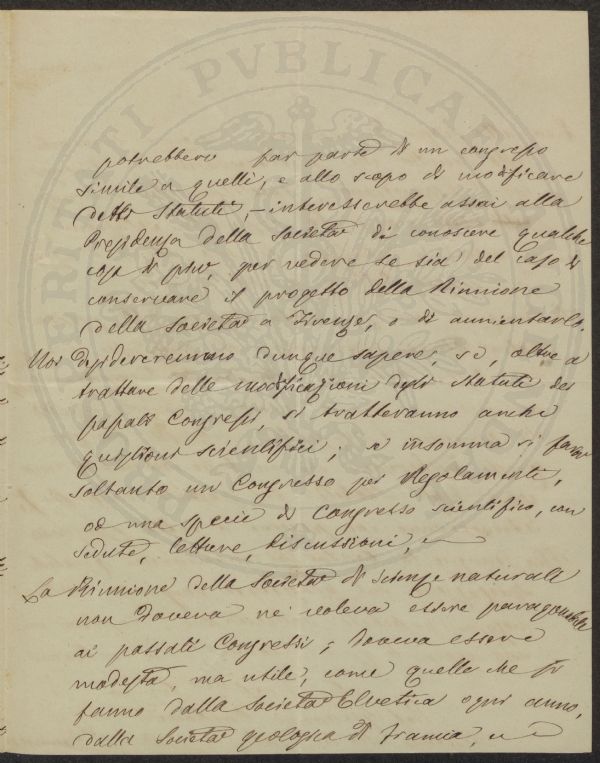 POSTERITATI PVBLICAE
potrebbero far parte di un congresso
simile a quelli, e allo scopo di modificare
detti Statuti, – interesserebbe assai alla
Presidenza della Società di conoscere qualche
cosa di più, per vedere se sia del caso di
conservare il progetto della Riunione
della Società a Firenze, o di annientarlo.
Noi desidereremmo dunque sapere, se, oltre a
trattare delle modificazioni degli statuti dei
passati Congressi, si tratteranno anche
quistioni scientifici; se insomma si farà
soltanto un Congresso per Regolamenti,
od una specie di Congresso scientifico, con
sedute, letture, discussioni,
La Riunione della Società di scienze naturali
non doveva nè voleva essere paragonabile
ai passati Congressi; doveva essere
modesta, ma utile, come quelle che si
fanno dalla Società Elvetica ogni anno,
dalla Società geologica di Francia,